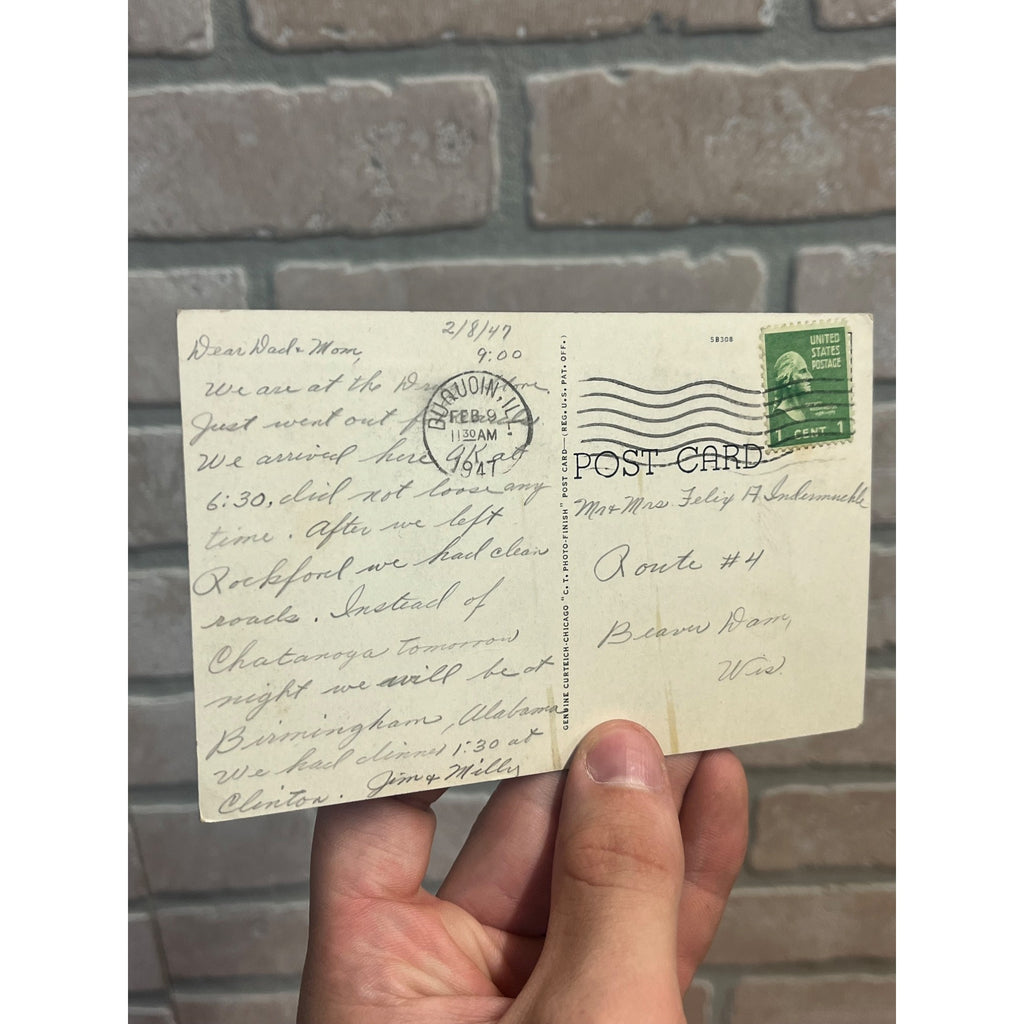 2/8/47
9:00
Dear Dad & Mom,
We are at the Drug Store
Just went out f
We arrived here OK at
6:30, did not loose any
time. After we left
Rockford we had clean
roads. Instead of
Chatanoga tomorrow
night we will be at
Birmingham, Alabama
We had dinner 1:30 at
Clinton. Jim & Milly
DUQUOIN, ILL.
FEB 9
11 30 AM
1947
GENUINE CURTEICH-CHICAGO "C. T. PHOTO-FINISH" POST CARD—(REG. U. S. PAT. OFF.)
5B308
UNITED
STATES
POSTAGE
1 CENT 1
POST CARD
Mr & Mrs. Felix A Indermuehle
Route #4
Beaver Dam,
Wis.